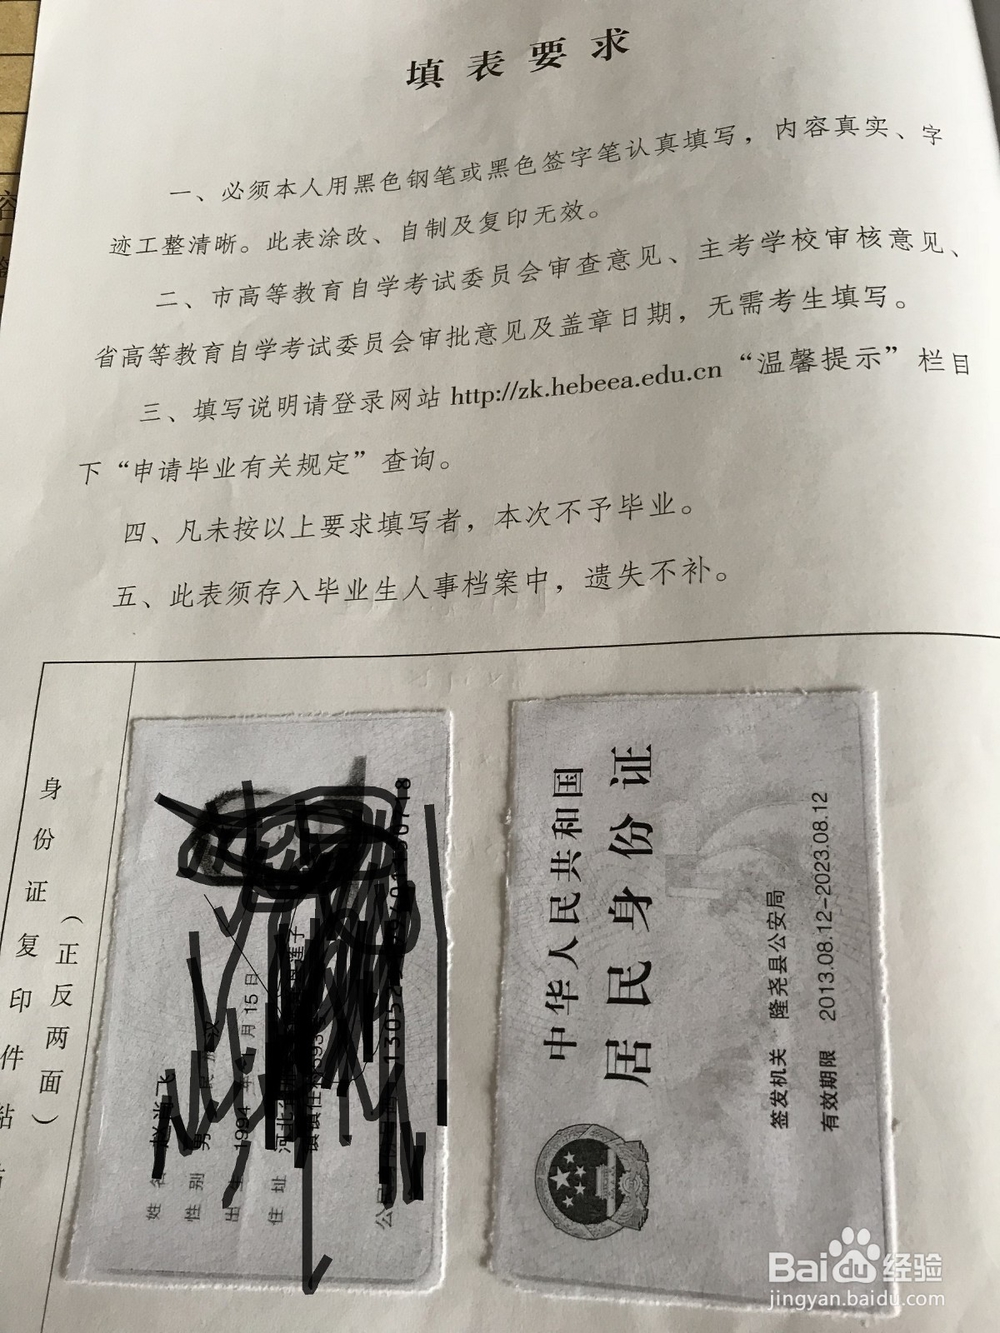 填表要求
一、必须本人用黑色钢笔或黑色签字笔认真填写，内容真实、字
迹工整清晰。此表涂改、自制及复印无效。
二、市高等教育自学考试委员会审查意见、主考学校审核意见、
省高等教育自学考试委员会审批意见及盖章日期，无需考生填写。
三、填写说明请登录网站 http://zk.hebeea.edu.cn “温馨提示” 栏目
下“申请毕业有关规定”查询。
四、凡未按以上要求填写者，本次不予毕业。
五、此表须存入毕业生人事档案中，遗失不补。
身份证复印件粘
（正反两面）
姓名
性别 男 民
出生 1994 年 月 15 日
住址 河北
公
中华人民共和国
居民身份证
签发机关 隆尧县公安局
有效期限 2013.08.12-2023.08.12
Baidu 经验
jingyan.baidu.com